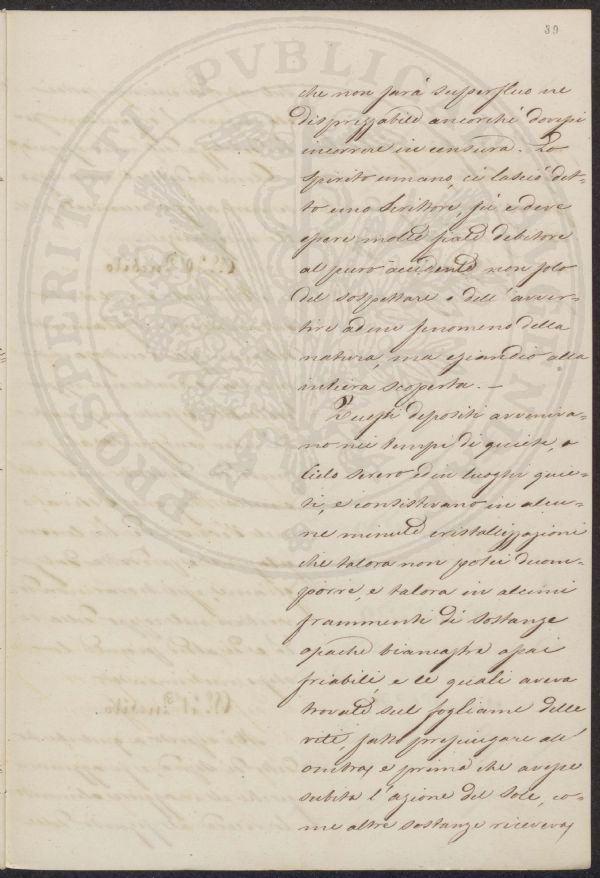 39
PROSPERITATI PVBLICAE
che non sarà superfluo ne
disprezzabile ancorchè dovessi
incorrere in censura. Lo
spirito umano, ci lasciò det-
to uno Scrittore, fù e deve
essere molte fiate debitore
al puro accidente non solo
del sospettare o dell'avver-
tire ad un fenomeno della
natura, ma eziandio alla
intiera scoperta. —
Questi depositi avveniva-
no nei tempi di quiete, a
Cielo sereno ed in luoghi quie-
ti, e consistevano in alcu-
ne minute cristallizzazioni
che talora non potei decom-
porre, e talora in alcuni
frammenti di sostanze
opache biancastre assai
friabili, e le quali aveva
trovate sul fogliame delle
vite, fatte prosciugare all'
ombra e prima che avesse
subita l'azione del Sole, co-
me altre sostanze riceveva